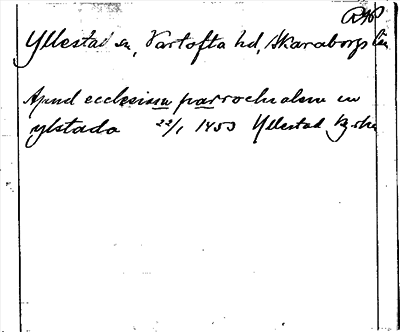 Yllestad sn, Vartofta hd, Skaraborgs län
Apud ecclesiam parrochialem in
ylstada 22/1 1453 Yllestad